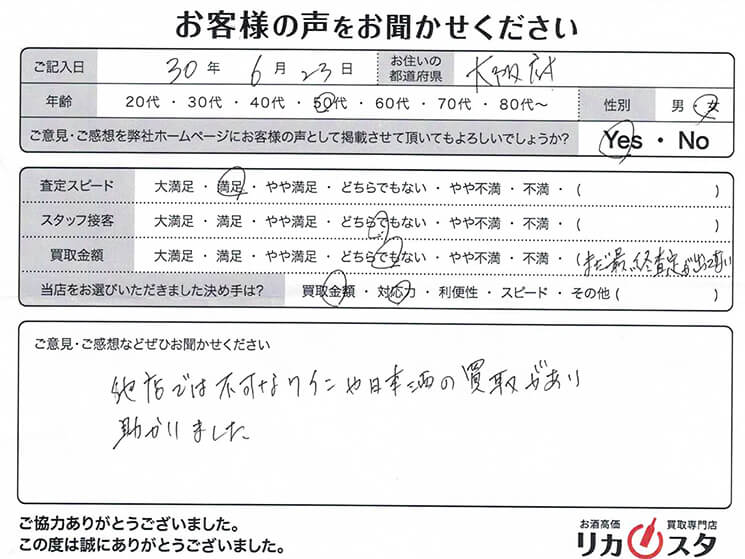 お客様の声をお聞かせください
ご記入日 30 年 6 月 23 日 お住いの都道府県 大阪府
年齢 20代 ・ 30代 ・ 40代 ・ 50代 ・ 60代 ・ 70代 ・ 80代～ 性別 男 ・ 女
ご意見・ご感想を弊社ホームページにお客様の声として掲載させて頂いてもよろしいでしょうか? Yes ・ No
査定スピード 大満足 ・ 満足 ・ やや満足 ・ どちらでもない ・ やや不満 ・ 不満 ・ ( )
スタッフ接客 大満足 ・ 満足 ・ やや満足 ・ どちらでもない ・ やや不満 ・ 不満 ・ ( )
買取金額 大満足 ・ 満足 ・ やや満足 ・ どちらでもない ・ やや不満 ・ 不満 ・ (まだ最終査定が出てない
当店をお選びいただきました決め手は? 買取金額 ・ 対応力 ・ 利便性 ・ スピード ・ その他 ( )
ご意見・ご感想などぜひお聞かせください
他店では不可なワインや日本酒の買取があり
助かりました
ご協力ありがとうございました。
この度は誠にありがとうございました。
お酒高価 買取専門店
リカスタ